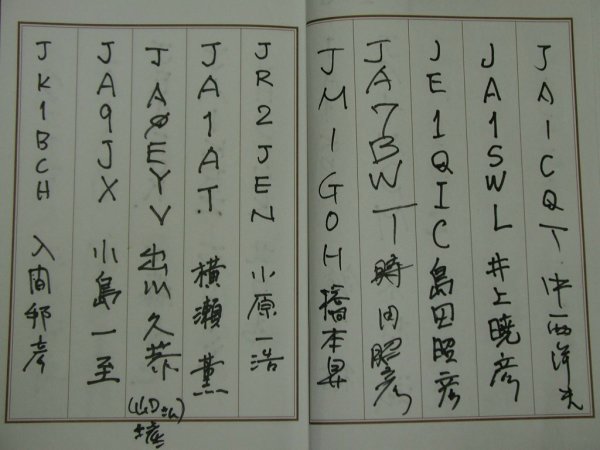 JA1CQT 中西洋夫
JA1SWL 井上暁彦
JE1QIC 島田昭彦
JA7BWT 時田昭彦
JM1GOH 橋本昇
JR2JEN 小原一浩
JA1AT. 横瀬薫
JAØEYV 出川久恭
JA9JX 小島一至
JK1BCH 入間邦彦